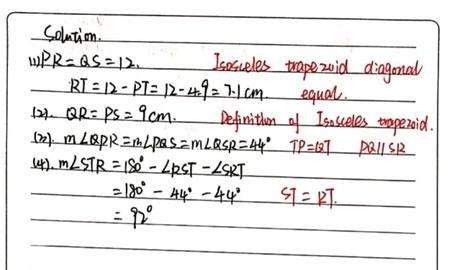 Solution.
(1) PR = QS = 12. Isosceles trapezoid diagonal
RT = 12 - PT = 12 - 4.9 = 7.1 cm. equal.
(2). QR = PS = 9 cm. Definition of Isosceles trapezoid.
(3). m∠QPR = m∠PQS = m∠QSR = 44° TP = QT PQ // SR
(4). m∠STR = 180° - ∠RST - ∠SRT
= 180° - 44° - 44° ST = RT.
= 92°